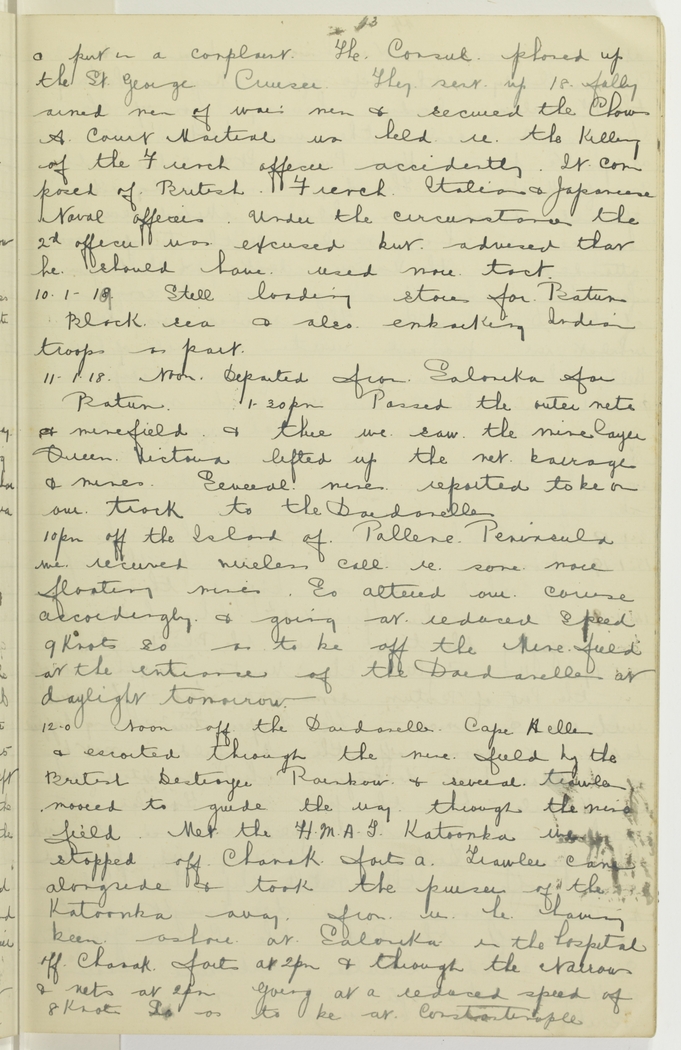 13
a put in a complaint. The. Consul. phoned up
the St. George Cruiser. They sent. up 18. fully
armed men of war men & secured the Chow
A. Court Martial was held re. the Killing
of the French officer accidently. It com
posed of. British. French. Italian & Japanese
Naval officers. Under the circumstances the
2nd officer was excused but. advised that
he should have. used more tact.
10.1-19 Still loading stores for. Batum
Black. sea & also. embarking Indian
troops as part.
11-1-18. Noon. Departed from. Salonika for
Batum. 1-30pm Passed the outer nets
& minefield. & there we. saw. the minelayer
Queen. Victoria lifted up the net. barrage
& mines. Several. mines. reported to be on
our. track to the Dardanelles
10pm off the Island of. Pallene. Peninsula
we. received wireless call re. some more
floating mines. So altered our. course
accordingly. & going at. reduced speed
9 Knots so as to be off the Mine. field
at the entrance of the Dardanelles at
daylight tomorrow.
12-0 Noon off the Dardanelles. Cape Helles
& escorted through the mine. field by the
British Destroyer Rainbow. & several. trawlers
moored to guide the way through the mine
field. Met. the H.M.A.T. Katoonka
stopped off. Chanak. forts a. Trawler came
alongside & took the purser of the
Katoonka away. from. us he. having
been ashore at Salonika in the hospital
off. Chanak. forts at 2pm & through the Narrows
& nets at 2pm Going at a reduced speed of
8 Knots So as to be at Constantinople